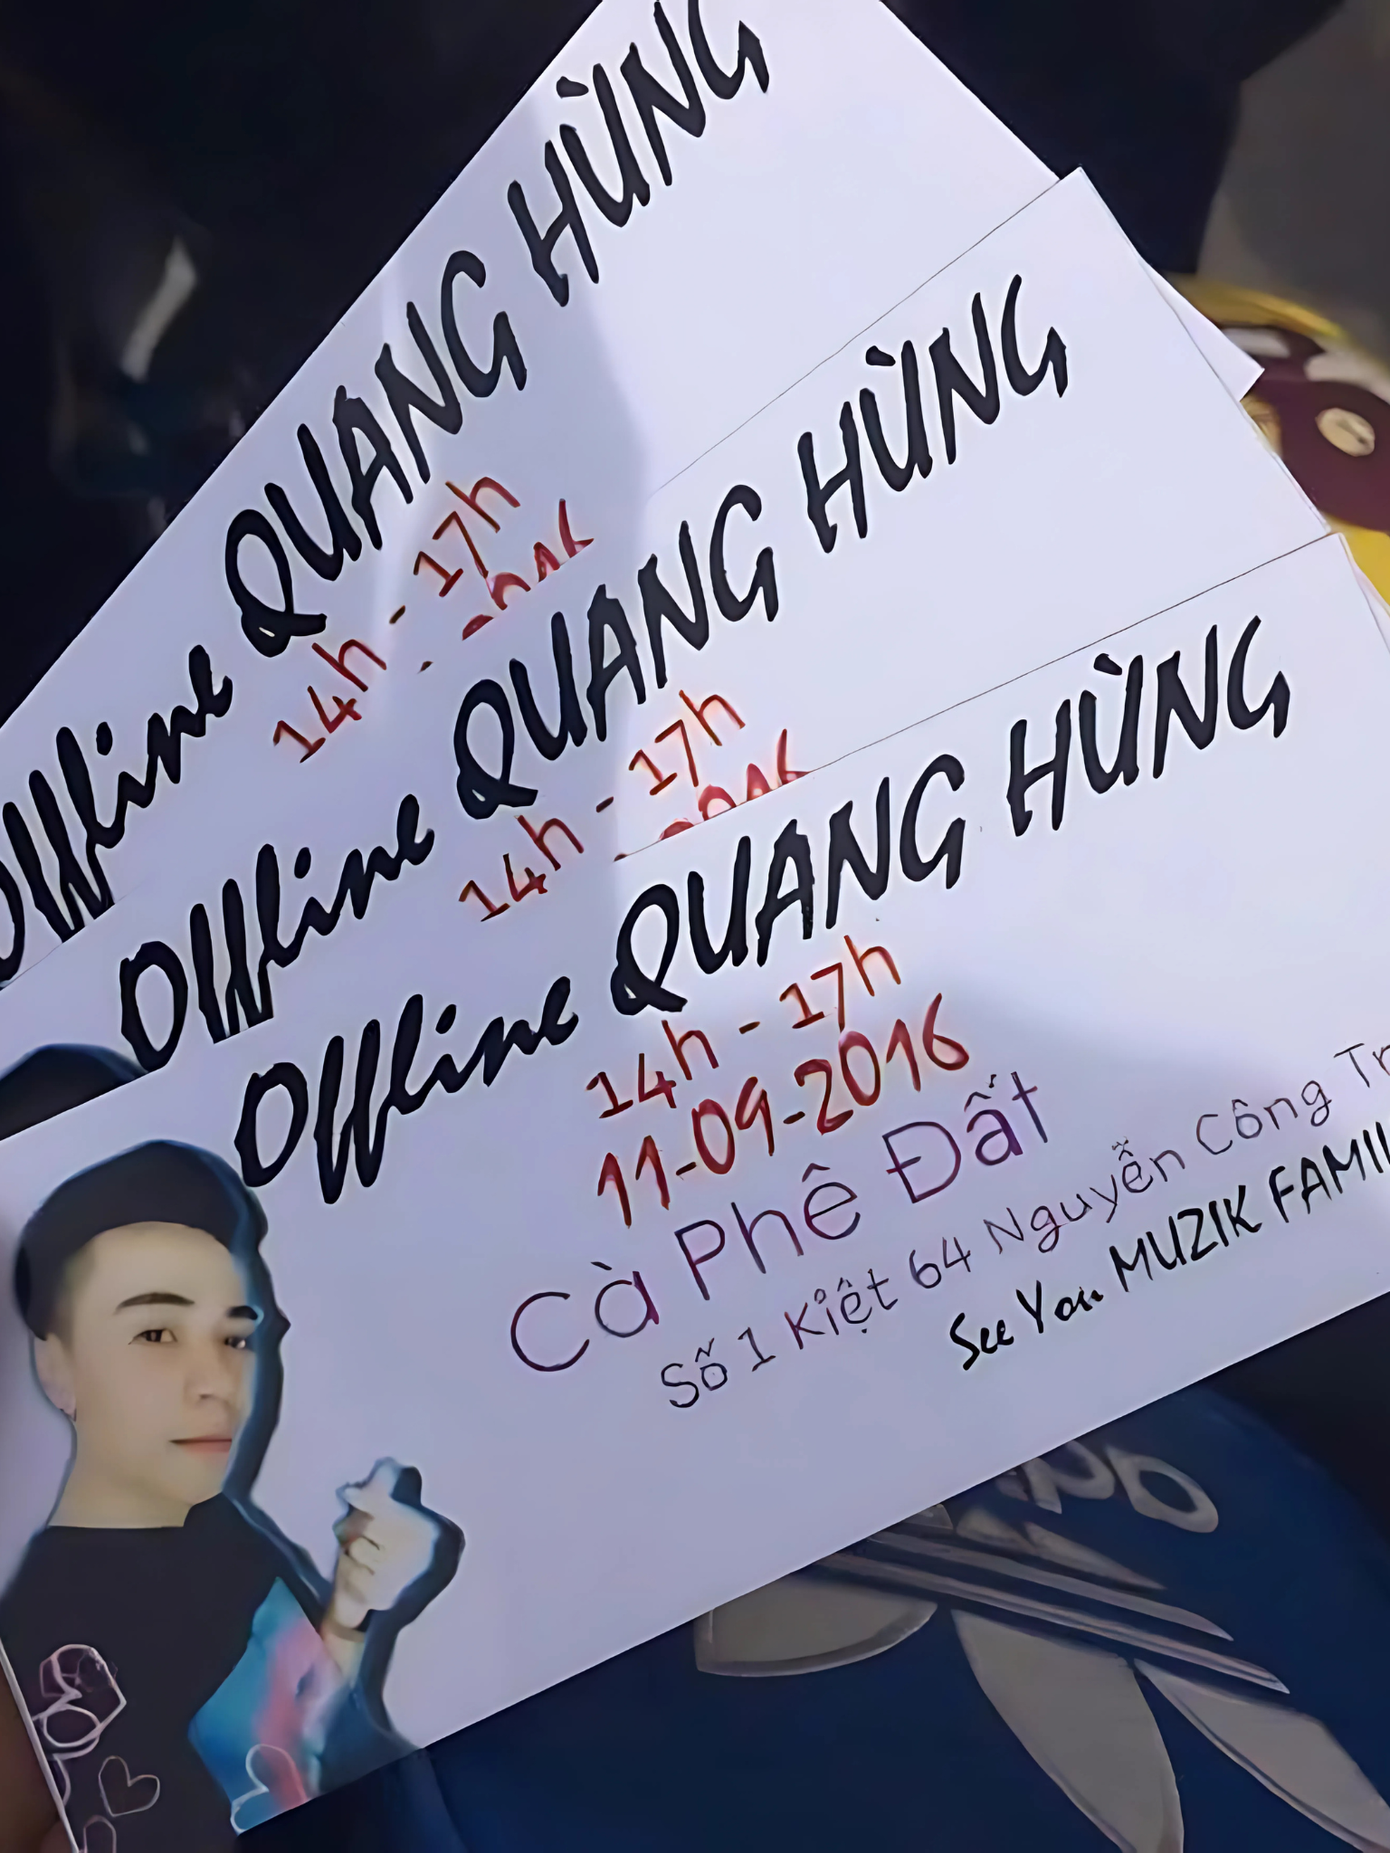 Offline QUANG HÙNG
14h - 17h
Offline QUANG HÙNG
14h - 17h
Offline QUANG HÙNG
14h - 17h
11-09-2016
Cà Phê Đất
Số 1 Kiệt 64 Nguyễn Công Tr
See You MUZIK FAMIL